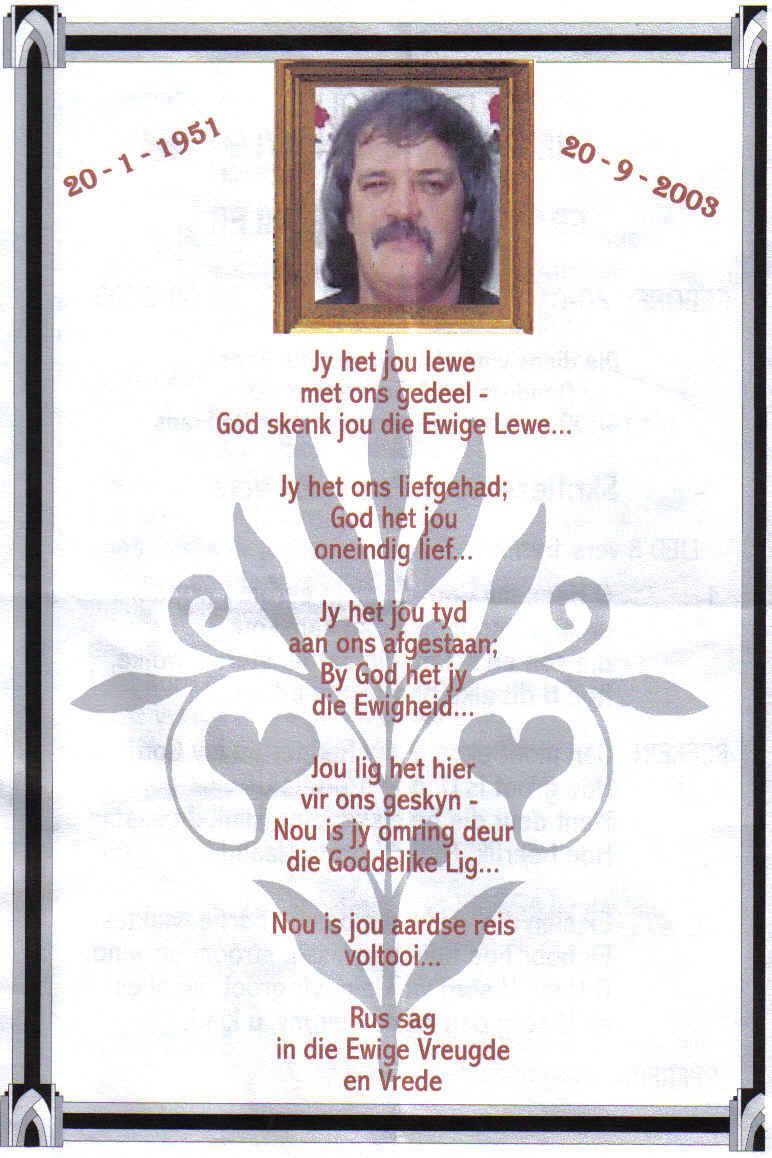 20-1-1951
20-9-2003
Jy het jou lewe
met ons gedeel -
God skenk jou die Ewige Lewe...
Jy het ons liefgehad;
God het jou
oneindig lief...
Jy het jou tyd
aan ons afgestaan;
By God het jy
die Ewigheid...
Jou lig het hier
vir ons geskyn -
Nou is jy omring deur
die Goddelike Lig...
Nou is jou aardse reis
voltooi...
Rus sag
in die Ewige Vreugde
en Vrede